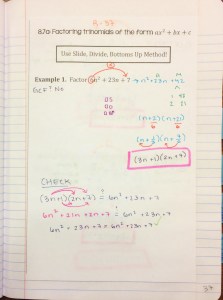 8.7a: Factoring trinomials of the form ax² + bx + c
Use Slide, Divide, Bottoms Up Method!
Example 1. Factor 6n² + 23n + 7 → n² + 23n + 42
GCF? No
A M
1 42
2 21
(n+2)(n+21)
(3n+1)(2n+7)
CHECK:
(3n+1)(2n+7) = 6n² + 23n + 7
6n² + 21n + 2n + 7 = 6n² + 23n + 7
6n² + 23n + 7 = 6n² + 23n + 7